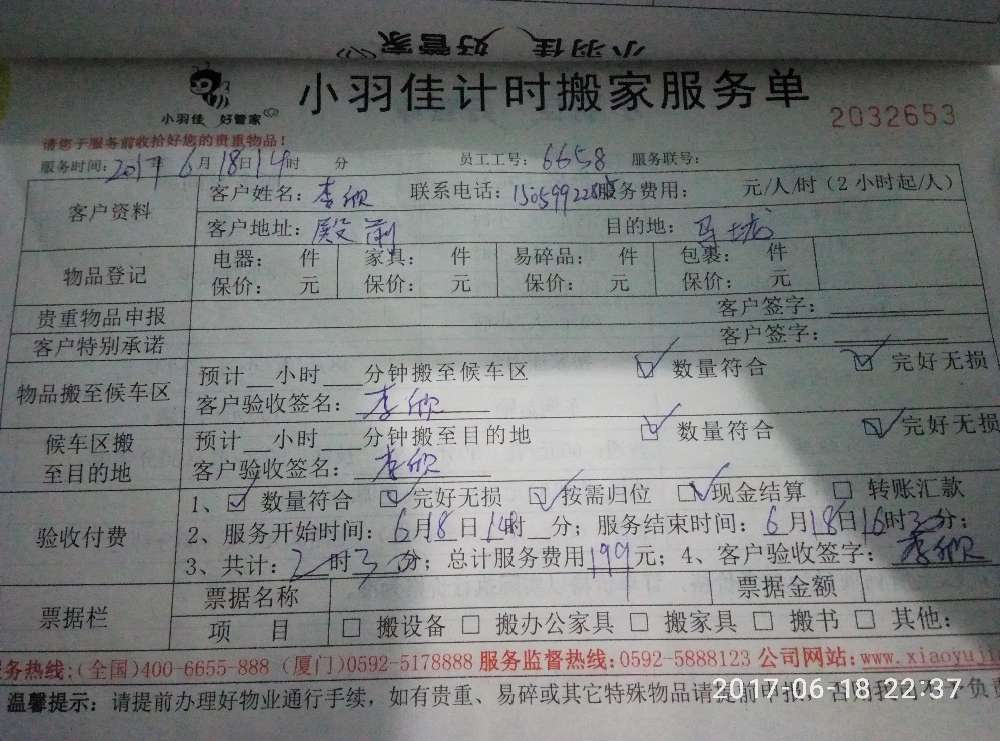 小羽佳 好管家
小羽佳 好管家
小羽佳计时搬家服务单
2032653
请您于服务前收拾好您的贵重物品！
服务时间：2017年6月18日14时 分 员工工号：6658 服务联号：
客户资料
客户姓名：李欣 联系电话：150599228 服务费用： 元/人/时（2小时起/人）
客户地址：殿前 目的地：马垅
物品登记
电器： 件 家具： 件 易碎品： 件 包裹： 件
保价： 元 保价： 元 保价： 元 保价： 元
贵重物品申报 客户签字：
客户特别承诺 客户签字：
物品搬至候车区
预计__小时___分钟搬至候车区 ☑ 数量符合 ☑ 完好无损
客户验收签名：李欣
候车区搬至目的地
预计__小时___分钟搬至目的地 ☑ 数量符合 ☑ 完好无损
客户验收签名：李欣
验收付费
1、☑ 数量符合 ☑ 完好无损 ☑ 按需归位 ☑ 现金结算 □ 转账汇款
2、服务开始时间：6月8日14时__分；服务结束时间：6月18日16时30分；
3、共计：2时30分；总计服务费用199元；4、客户验收签字：李欣
票据栏
票据名称 票据金额
项 目 □ 搬设备 □ 搬办公家具 □ 搬家具 □ 搬书 □ 其他：
务热线：(全国)400-6655-888 (厦门)0592-5178888 服务监督热线：0592-5888123 公司网站：www.xiaoyuji
温馨提示：请提前办理好物业通行手续，如有贵重、易碎或其它特殊物品请提前申报，否则我
2017-06-18 22:37